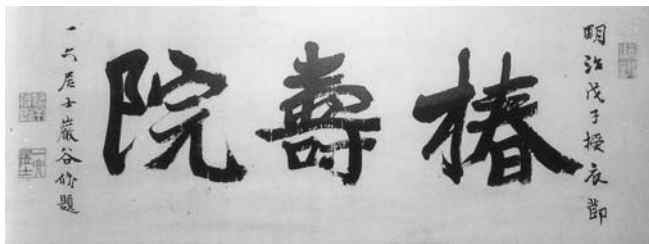 明治戊子授衣節
椿壽院
一六居士巖谷脩題